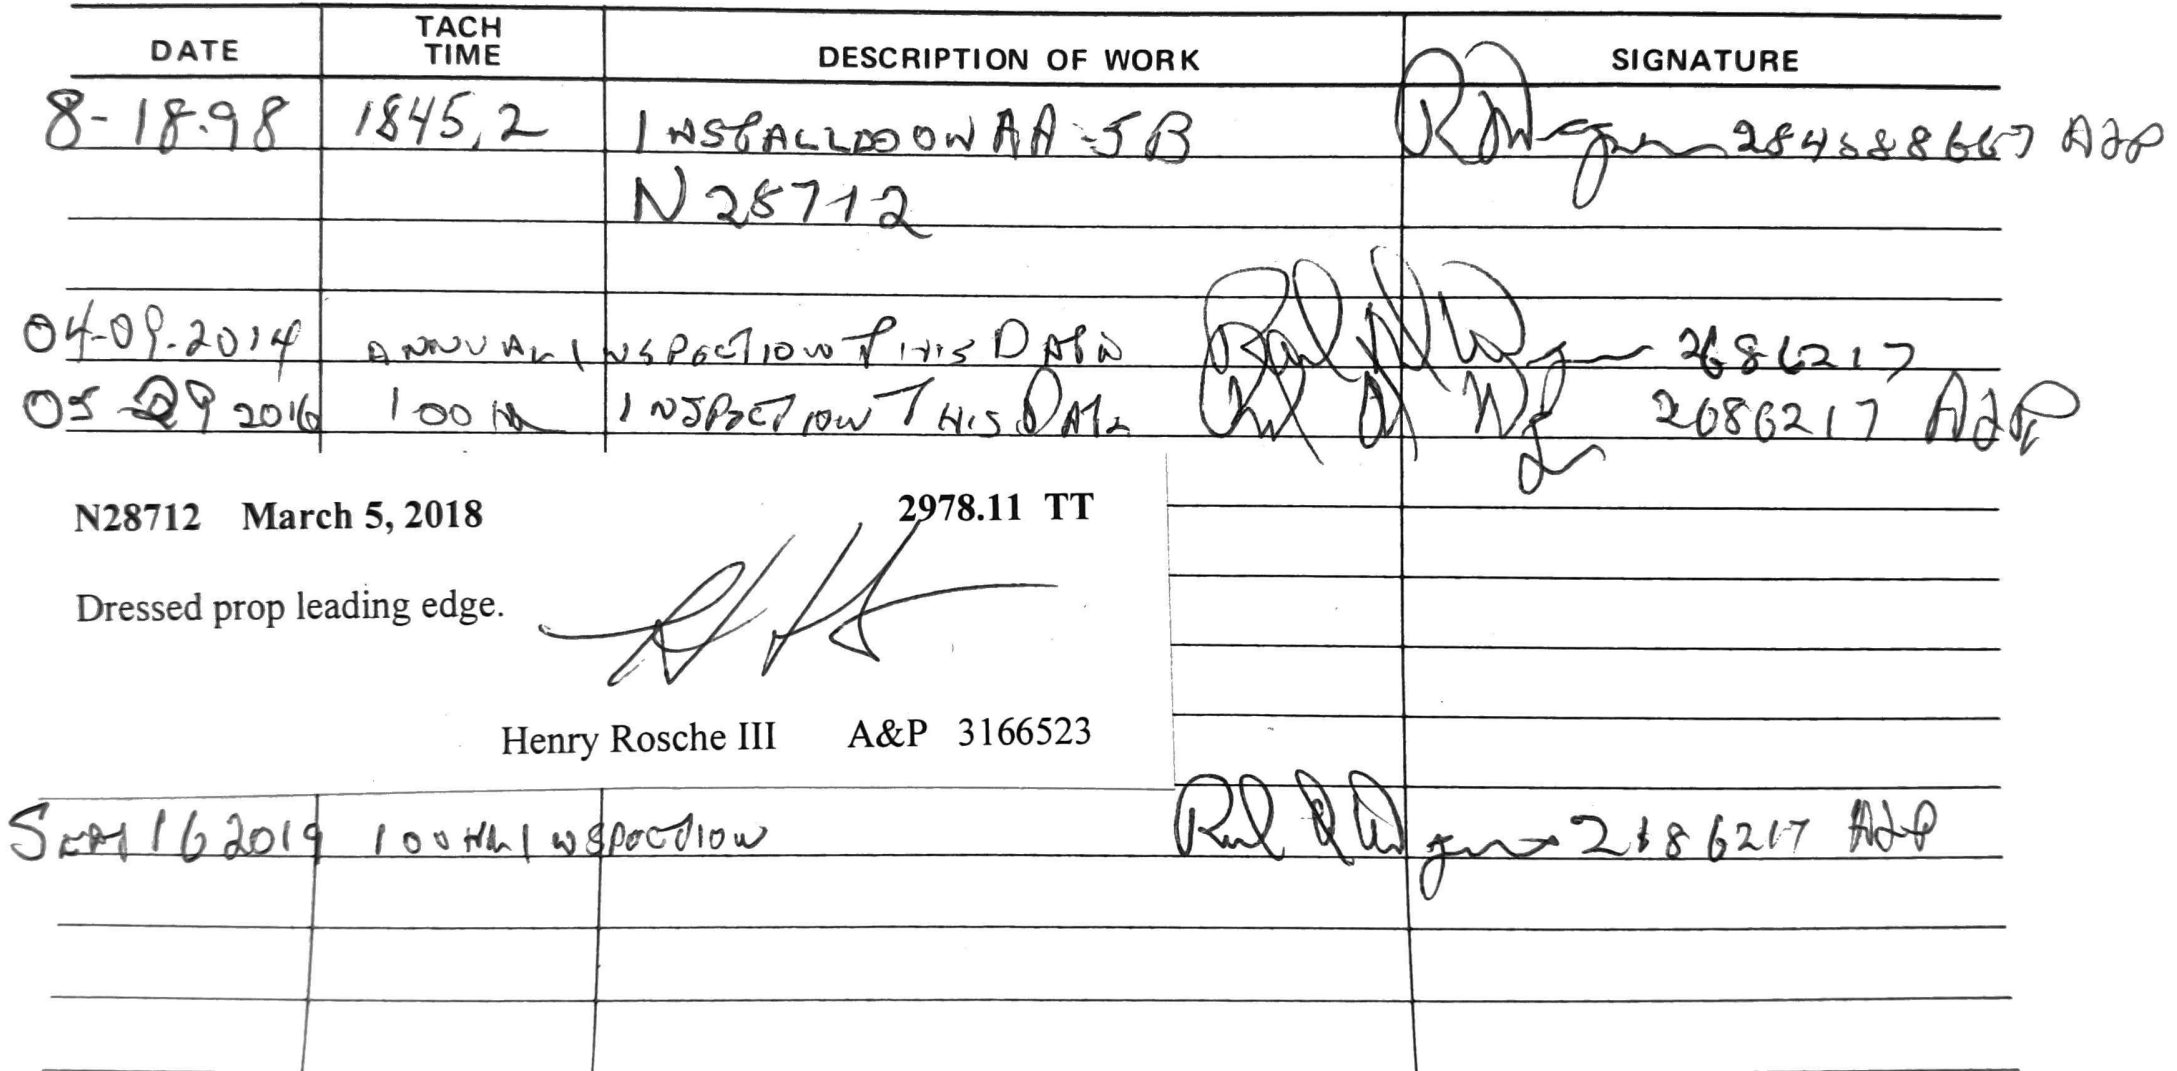 DATE TACH TIME DESCRIPTION OF WORK SIGNATURE
8-18-98 1845.2 INSTALLED ON AA-5B A&P
N28712
04-09-2014 ANNUAL INSPECTION THIS DATE 2686217
05-29 2016 100 HR INSPECTION THIS DATE 2686217 A&P
N28712 March 5, 2018 2978.11 TT
Dressed prop leading edge.
Henry Rosche III A&P 3166523
SEPT 16 2019 100 HR INSPECTION 2686217 A&P